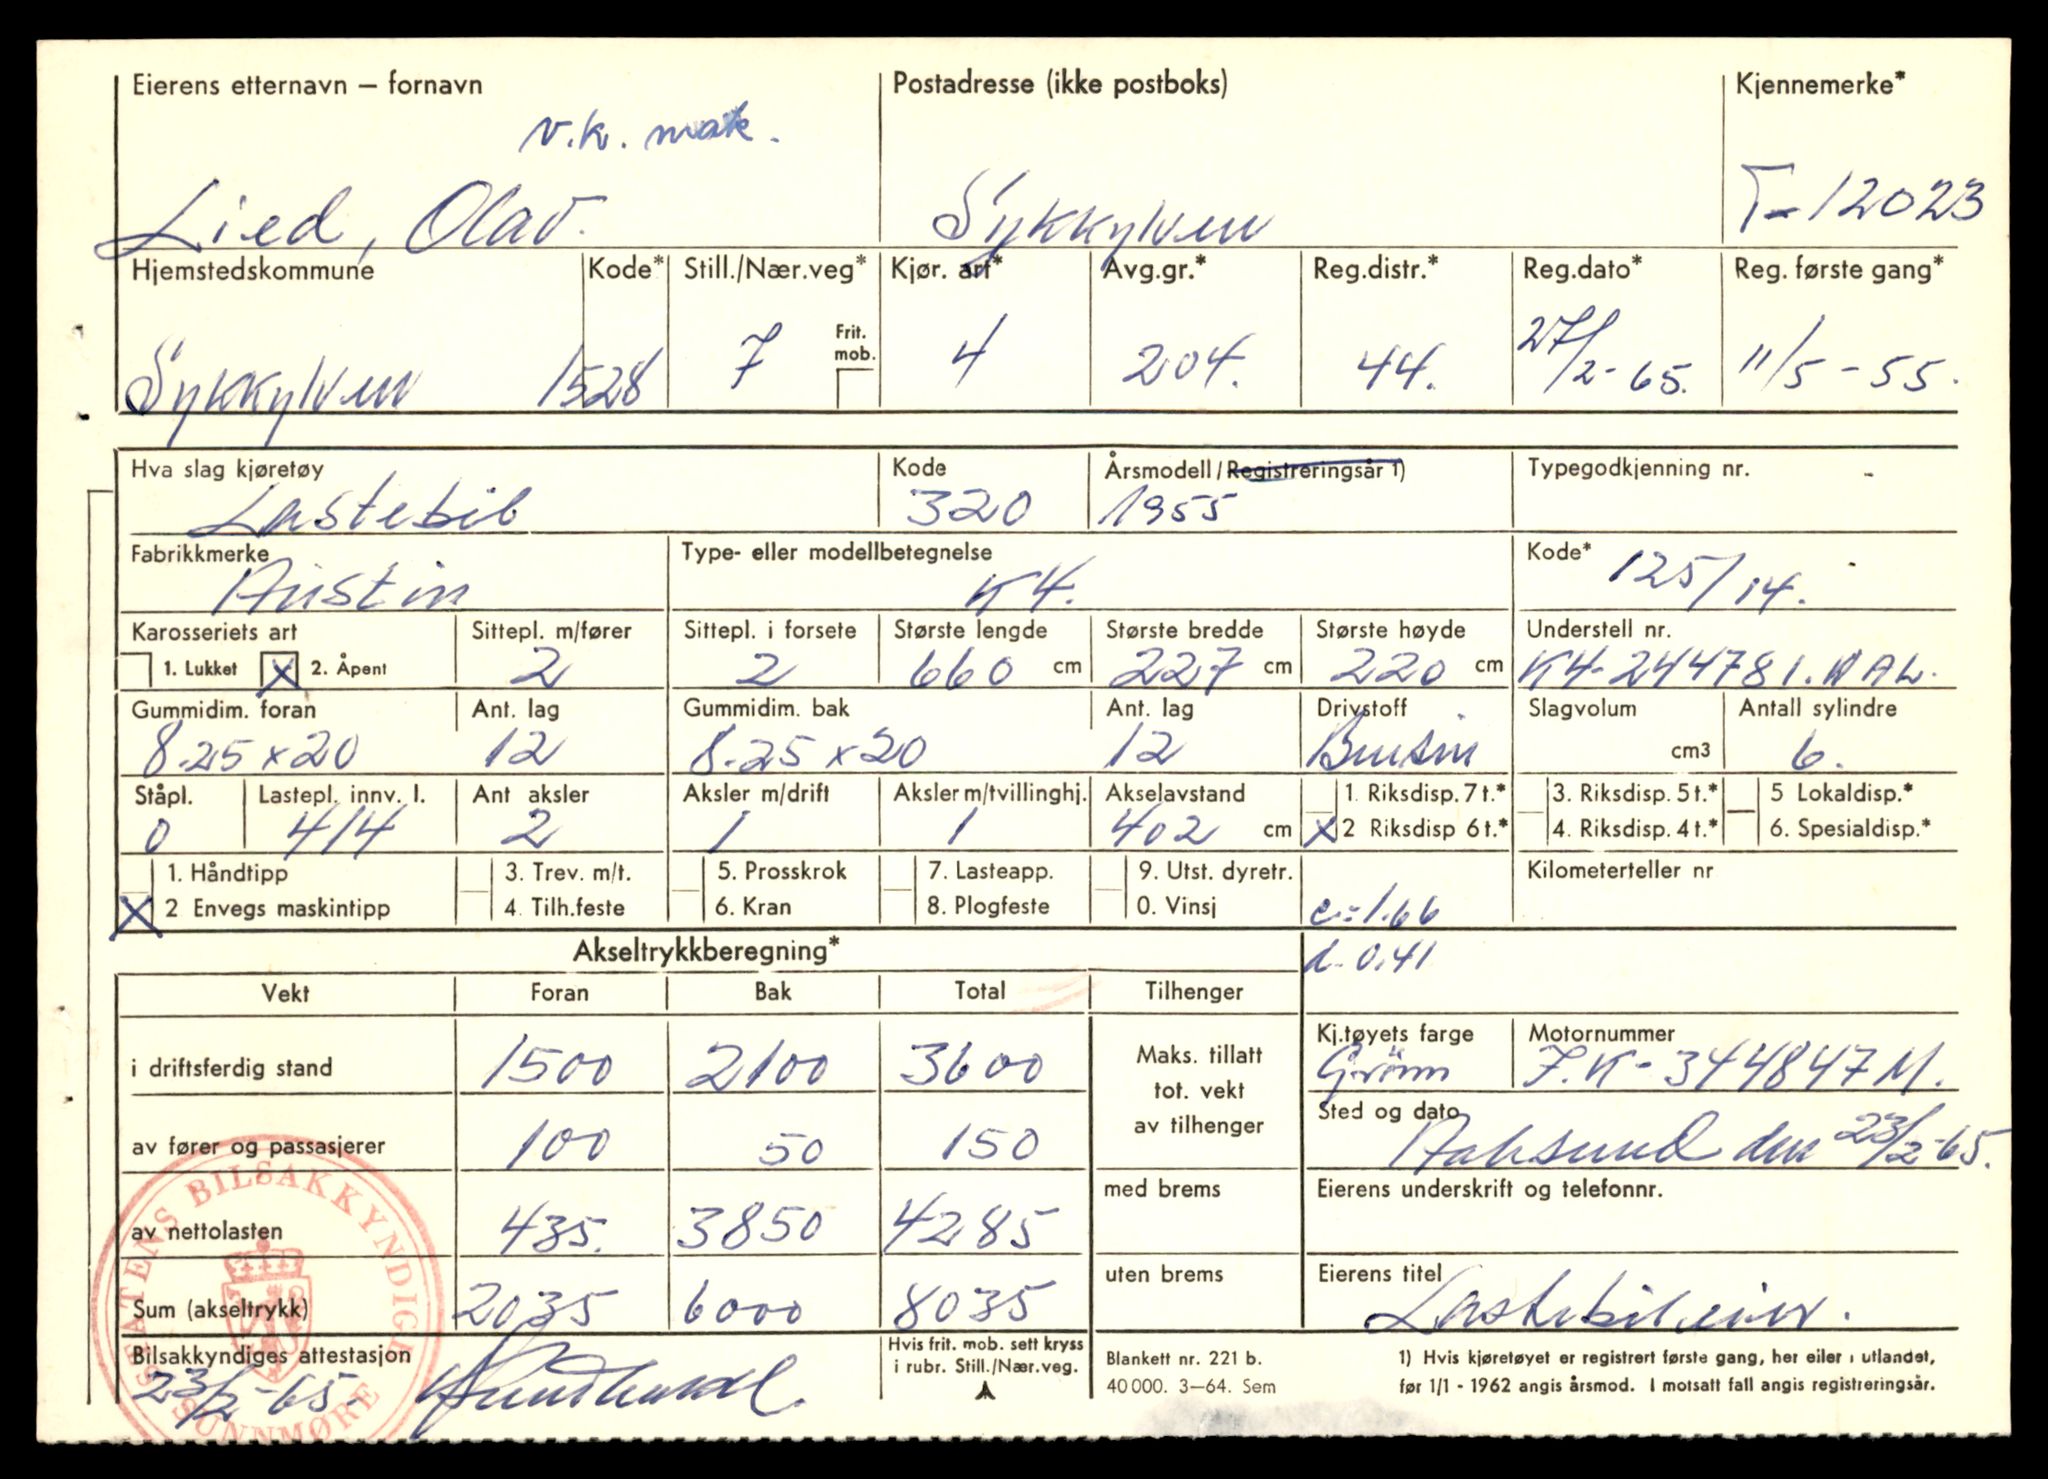 Eierens etternavn – fornavn
Postadresse (ikke postboks)
Kjennemerke*
v.k. mak.
Lied, Olav.
Sykkylven
T-12023
Hjemstedskommune Kode* Still./Nær.veg* Kjør. art* Avg.gr.* Reg.distr.* Reg.dato* Reg. første gang*
Frit. mob.
Sykkylven 1528 7 4 204. 44. 27/2-65. 11/5-55.
Hva slag kjøretøy Kode Årsmodell/Registreringsår 1) Typegodkjenning nr. -
Lastebil 320 1955
Fabrikkmerke Type- eller modellbetegnelse Kode*
Austin K4. 125/14.
Karosseriets art Sittepl. m/fører Sittepl. i forsete Største lengde Største bredde Største høyde Understell nr.
1. Lukket X 2. Åpent 2 2 660 cm 227 cm 220 cm K4-244781.WAL.
Gummidim. foran Ant. lag Gummidim. bak Ant. lag Drivstoff Slagvolum Antall sylindre
8.25 x 20 12 8.25 x 20 12 Bensin cm3 6.
Ståpl. Lastepl. innv. l. Ant aksler Aksler m/drift Aksler m/tvillinghj. Akselavstand 1. Riksdisp. 7 t.* 3. Riksdisp. 5 t.* 5 Lokaldisp.*
0 414 2 1 1 402 cm X 2 Riksdisp 6 t.* 4. Riksdisp. 4 t.* 6. Spesialdisp.*
1. Håndtipp 3. Trev. m/t. 5. Prosskrok 7. Lasteapp. 9. Utst. dyretr. Kilometerteller nr
X 2 Envegs maskintipp 4. Tilh.feste 6. Kran 8. Plogfeste 0. Vinsj c.=1.66
Akseltrykkberegning* d. 0.41
Vekt Foran Bak Total Tilhenger
i driftsferdig stand 1500 2100 3600
Maks. tillatt
tot. vekt
av tilhenger
Kj.tøyets farge Motornummer
Grönn 7.K-344847M.
av fører og passasjerer 100 50 150
Sted og dato
den 23/2-65.
av nettolasten 435. 3850 4285 med brems
Eierens underskrift og telefonnr.
Sum (akseltrykk) 2035 6000 8035 uten brems
Eierens titel
Lastebileier.
Bilsakkyndiges attestasjon
23/2-65.
Hvis frit. mob. sett kryss
i rubr. Still./Nær.veg.
Blankett nr. 221 b.
40 000. 3–64. Sem
1) Hvis kjøretøyet er registrert første gang, her eller i utlandet,
før 1/1 - 1962 angis årsmod. I motsatt fall angis registreringsår.
STATENS BILSAKKYNDIGE
SUNNMØRE